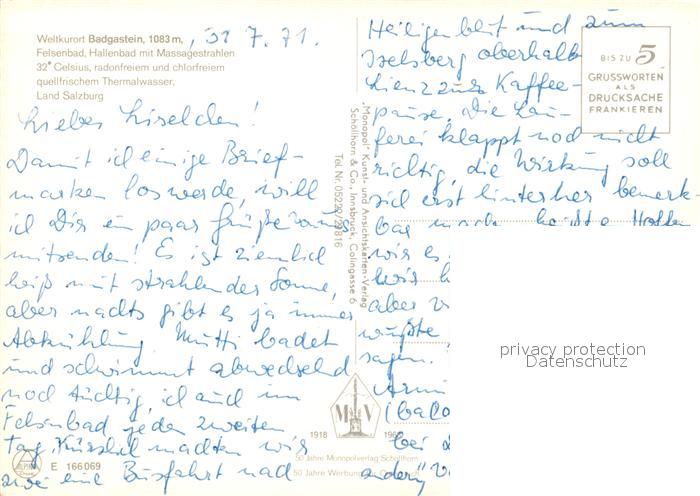 Weltkurort Badgastein, 1083 m,
Felsenbad, Hallenbad mit Massagestrahlen
32° Celsius, radonfreiem und chlorfreiem
quellfrischem Thermalwasser,
Land Salzburg
, 31 7. 71.
Liebes Lieselchen!
Damit ich einige Brief-
marken loswerde, will
ich Dir ein paar Grüße von uns
mitsenden! Es ist ziemlich
heiß mit strahlender Sonne,
aber nachts gibt es ja immer
Abkühlung. Mutti badet
und schwimmt abwechselnd
noch tüchtig, ich auch im
Felsenbad jeden zweiten
Tag. Kürzlich machten wir
zwei eine Busfahrt nach
Heiligenblut und zum
Iselsberg oberhalb
Lienz zur Kaffee-
pause. Die Lau-
ferei klappt noch nicht
richtig, die Wirkung soll
sich erst hinterher bemerk-
bar machen
wir es
wir h
aber v
wüßte
sagen.
(bald
bei
andern
BIS ZU 5
GRUSSWORTEN
ALS
DRUCKSACHE
FRANKIEREN
„Monopol" Kunst- und Ansichtskarten-Verlag
Schöllhorn & Co., Innsbruck, Colingasse 6
Tel. Nr. 05222/27816
M V
1918
50 Jahre Monopolverlag Schöllhorn
50 Jahre Werbung
ALPIN
E 166069
privacy protection
Datenschutz